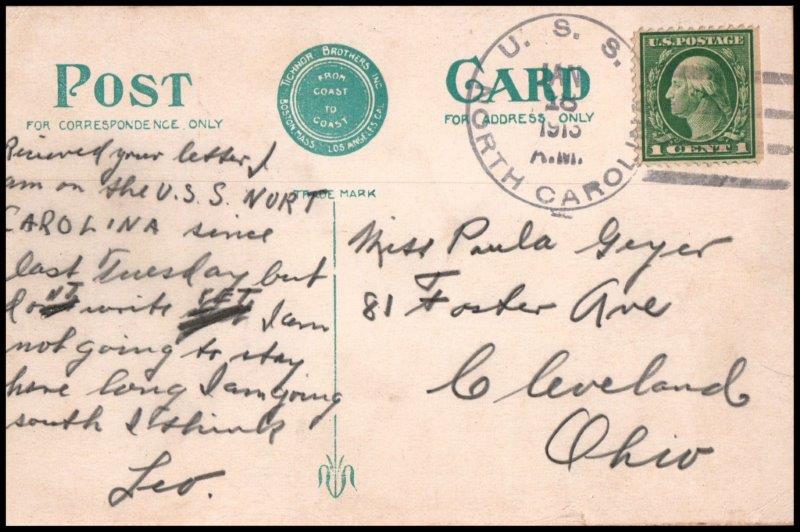 POST
CARD
FOR CORRESPONDENCE ONLY
FOR ADDRESS ONLY
TICHNOR BROTHERS INC.
BOSTON MASS. LOS ANGELES CAL.
FROM
COAST
TO
COAST
TRADE MARK
U. S. S.
NORTH CAROLINA
JAN
18
1913
A.M.
U.S. POSTAGE
1 CENT 1
Recieved your letter I
am on the U.S.S. NORT
CAROLINA since
last Tuesday but
do NT write YET I am
not going to stay
here long I am going
south I think
Leo.
Miss Paula Geyer
81 Foster Ave
Cleveland
Ohio